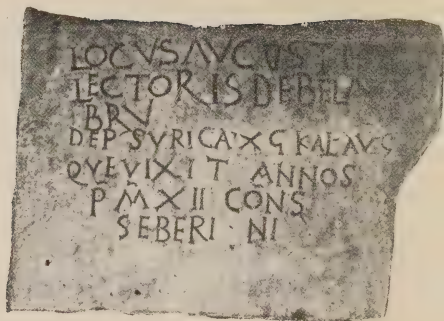 LOCVS AVCVSTI
LECTORIS DE BELA
BRV
DEP SVRICA XG KAL AVG
QVE VIXIT ANNOS
P M XII CONS
SEBERI NI